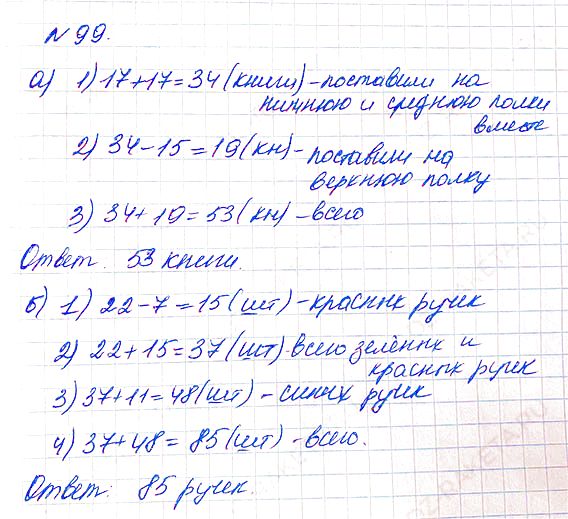 № 99.
а) 1) 17+17=34 (книги) - поставили на
нижнюю и среднюю полки
вместе
2) 34-15=19 (кн) - поставили на
верхнюю полку
3) 34+19=53 (кн) - всего
Ответ. 53 книги.
б) 1) 22-7=15 (шт) - красных ручек
2) 22+15=37 (шт) - всего зелёных и
красных ручек
3) 37+11=48 (шт) - синих ручек
4) 37+48=85 (шт) - всего.
Ответ: 85 ручек.